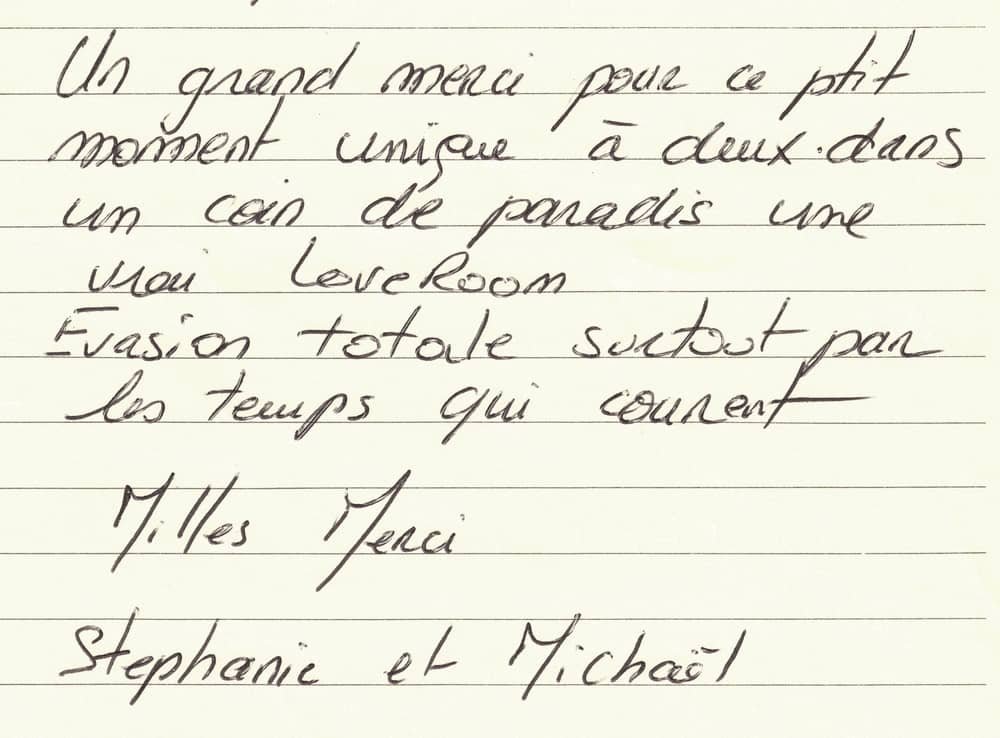 Un grand merci pour ce ptit
moment unique à deux.dans
un coin de paradis une
vrai LoveRoom
Evasion totale surtout par
les temps qui courent
Milles Merci
Stephanie et Michaël